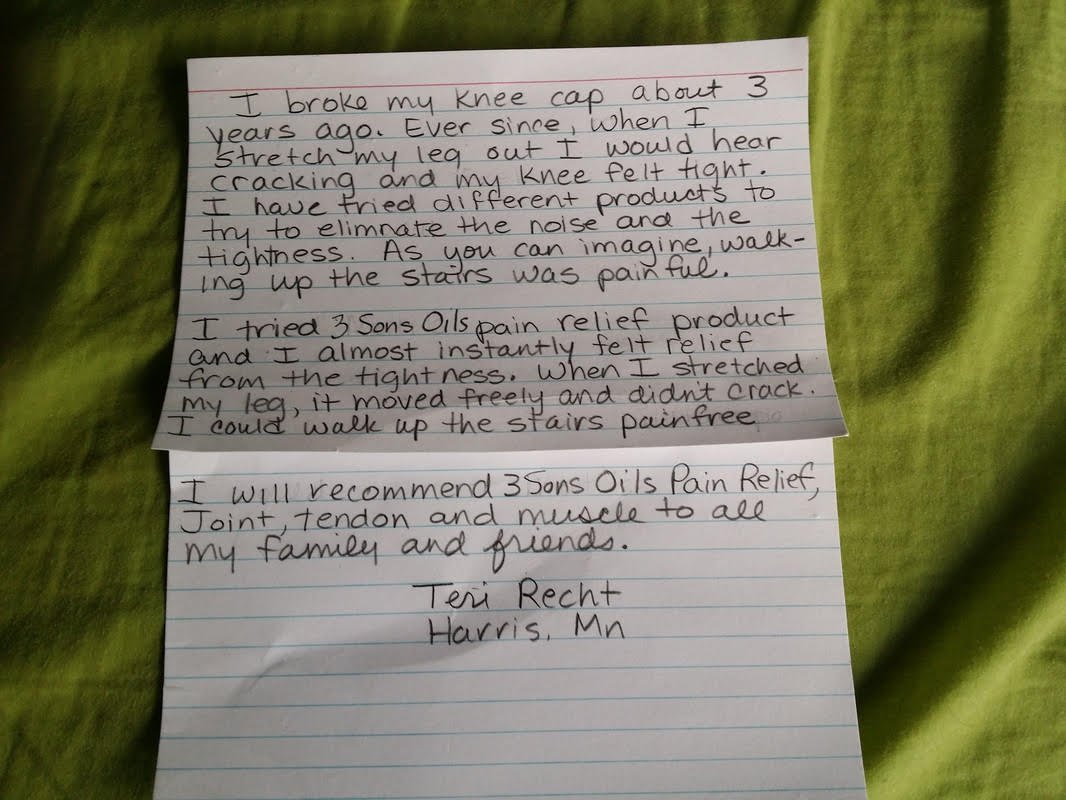 I broke my knee cap about 3
years ago. Ever since, when I
stretch my leg out I would hear
cracking and my knee felt tight.
I have tried different products to
try to elimnate the noise and the
tightness. As you can imagine, walk-
ing up the stairs was painful.
I tried 3 Sons Oils pain relief product
and I almost instantly felt relief
from the tightness. When I stretched
my leg, it moved freely and didn't crack.
I could walk up the stairs painfree
I will recommend 3 Sons Oils Pain Relief,
Joint, tendon and muscle to all
my family and friends.
Teri Recht
Harris, Mn